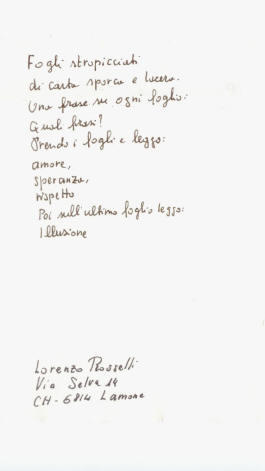 Fogli stropicciati
di carta sporca e lacera.
Una frase su ogni foglio:
Quali frasi?
Prendo i fogli e leggo:
amore,
speranza,
rispetto
Poi sull'ultimo foglio leggo:
Illusione
Lorenzo Rosselli
Via Selva 14
CH - 6814 Lamone